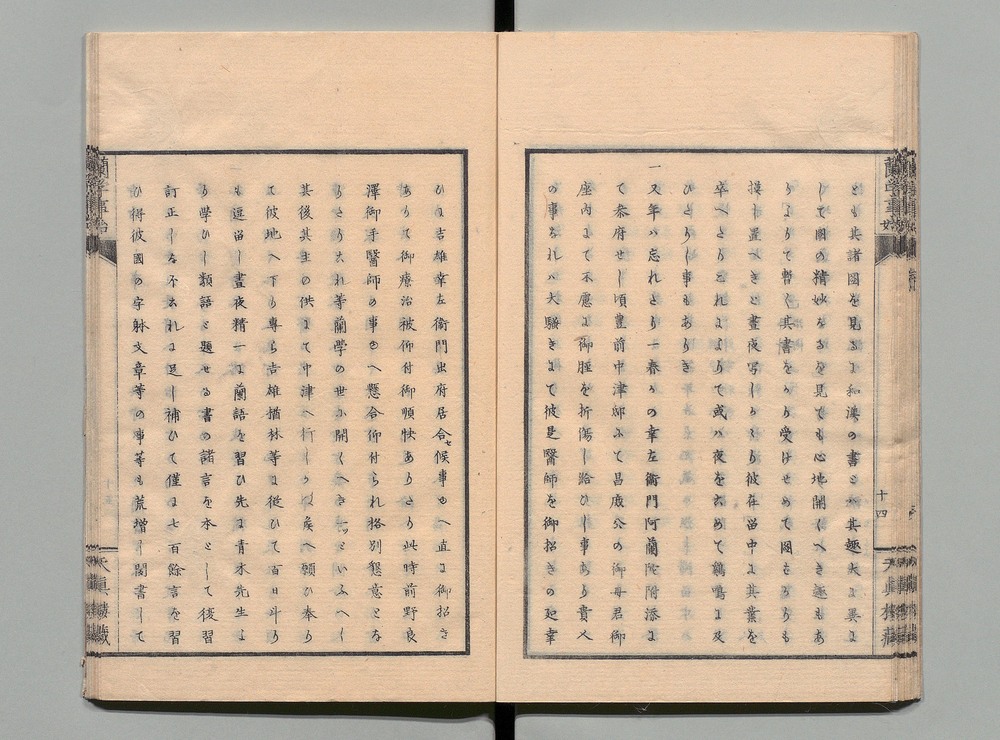 とも其諸圖を見るに和漢の書とハ其趣大に異に
して圖の精妙なるを見ても心地開くへき趣もあ
りよりて暫く其書をかり受けせめて圖をなりも
摸し置へきと晝夜写しかゝり彼在留中に其業を
卒へたりこれによりて或ハ夜をこめて鷄鳴に及
ひたりし事もありき
一又年ハ忘れたり一春かの幸左衞門阿蘭陀附添に
て參府せし頃豊前中津邸ニて昌成公の御母君御
座内にて不慮に御脛を折傷し給ひし事あり貴人
の事なれハ大騒きにて彼是醫師を御招きの處幸
ひに吉雄幸左衞門出府居合セ候事ゆへ直に御招き
ありて御療治被仰付御順快ありたり此時前野良
澤御手醫師の事ゆへ懸合仰付られ格別懇意とな
りたりこれ等蘭學の世に開くへき一つといふへし
其後其主の供にて中津へ行しか侯へ願ひ奉り
て彼地へ下り專ら吉雄楢林等に從ひて百日斗り
も逗留し晝夜精一に蘭語を習ひ先に青木先生よ
り學ひし類語と題せる書の諸言を本として復習
訂正しなほこれに足し補ひて僅に七百餘言を習
ひ得彼國の字躰文章等の事等も荒増ニ聞書して
蘭學事始
十四
天真樓藏
蘭學事始
天真樓藏